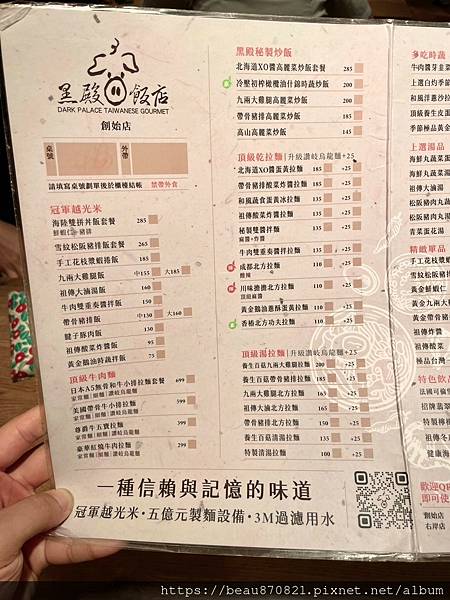 黑殿飯店
DARK PALACE TAIWANESE GOURMET
創始店
桌號
外帶
請填寫桌號劃單後於櫃檯結帳 禁帶外食
冠軍越光米
海陸雙拼丼飯套餐 285
鮮蝦仁+豬排
雪紋松阪豬排飯套餐 265
手工花枝漿蝦捲飯 115
九兩大雞腿飯 中155 大185
祖傳大滷湯飯 160
牛肉雙重奏醬拌飯 110
帶骨豬排飯 中130 大160
腱子豚肉飯 130
祖傳酸菜炸醬飯 95
黃金鵝油時蔬拌飯 75
頂級牛肉麵
日本A5無骨和牛小排麵套餐 699
家常麵|細麵|讚岐烏龍麵
美國帶骨牛小排拉麵 399
家常麵|細麵|讚岐烏龍麵
尊爵牛五寶拉麵 299
家常麵|細麵|讚岐烏龍麵
豪華紅燒牛肉拉麵 299
家常麵|細麵|讚岐烏龍麵
黑殿秘製炒飯
北海道XO醬高麗菜炒飯套餐 285
冷壓初榨橄欖油什錦時蔬炒飯 200
九兩大雞腿高麗菜炒飯 200
帶骨豬排高麗菜炒飯 185
高山高麗菜炒飯 145
頂級乾拉麵|升級讚岐烏龍麵+25
北海道XO醬蛋黃拉麵 185 +25
帶骨豬排酸菜炸醬拉麵 185 +25
和風蔬食蛋黃冰拉麵 135 +25
祖傳酸菜炸醬拉麵 135 +25
秘製雙醬拌麵 135 +25
麻醬+炸醬
牛肉雙重奏醬拌拉麵 110 +25
成都北方拉麵 110 +25
川味擔擔北方拉麵 110 +25
頂級麻醬
黃金鵝油蔥酥蛋黃拉麵 110 +25
香椿北方功夫拉麵 110 +25
頂級湯拉麵|升級讚岐烏龍麵+25
養生百菇九兩大雞腿拉麵 200 +25
養生百菇帶骨豬排拉麵 185 +25
九兩大雞腿北方拉麵 165 +25
祖傳大滷北方拉麵 165 +25
帶骨豬排北方拉麵 145 +25
養生百菇清湯拉麵 135 +25
特製清湯拉麵 100 +25
多吃時蔬
上選湯品
精緻單品
特色飲品
歡迎QR
即可使
創始店
右岸店
一種信賴與記憶的味道
冠軍越光米·五億元製麵設備·3M過濾用水
https://beau870821.pixnet.net/album